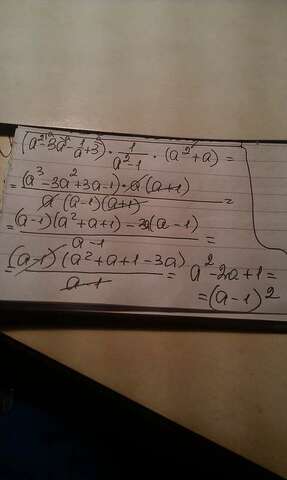 (a² - 3a - 1/a + 3) · 1/(a² - 1) · (a² + a) =
= (a³ - 3a² + 3a - 1) · a (a+1) / a (a-1)(a+1) =
= (a-1)(a² + a + 1) - 3a(a - 1) / a - 1 =
= (a-1)(a² + a + 1 - 3a) / a - 1 = a² - 2a + 1 =
= (a - 1)²